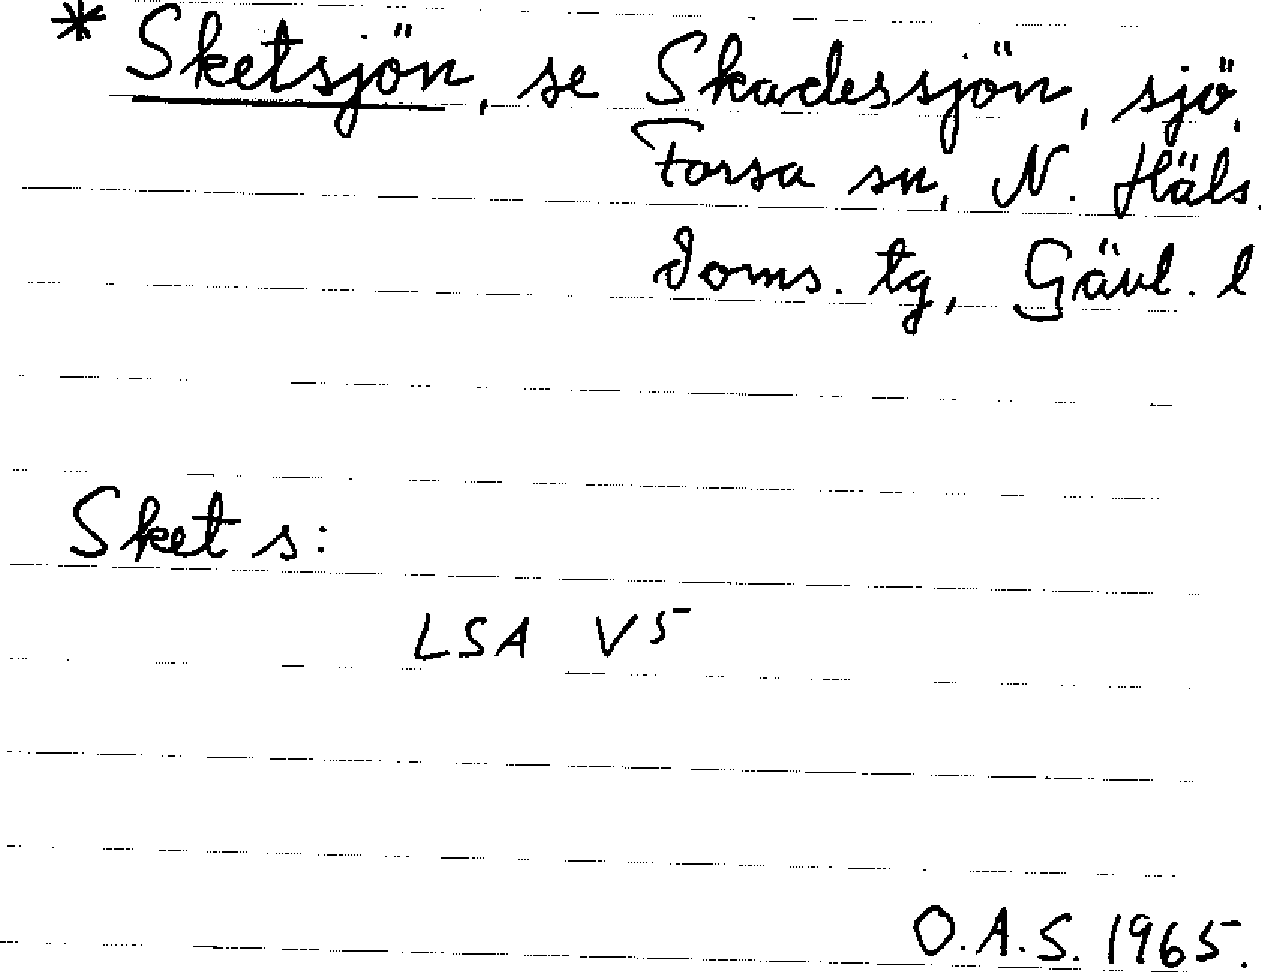 * Sketsjön, se Skadessjön, sjö,
Forsa sn, N. Häls.
Doms. tg, Gävl. l
Sket s:
LSA V5
O.A.S. 1965.